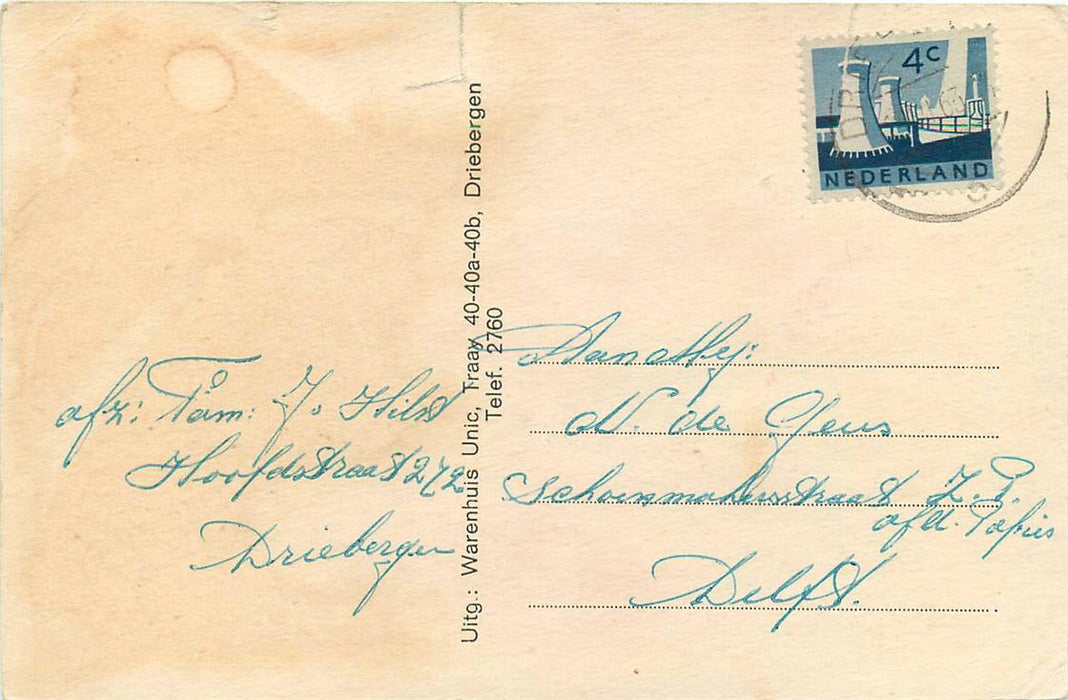 4c
NEDERLAND
Uitg.: Warenhuis Unic, Traay 40-40a-40b, Driebergen
Telef. 2760
afz: Fam: J. Hilst
Hoofdstraat 272
Driebergen
Aan Mej:
N. de Geus
Schoenmakersstraat Z.P.
afd.
Delft.